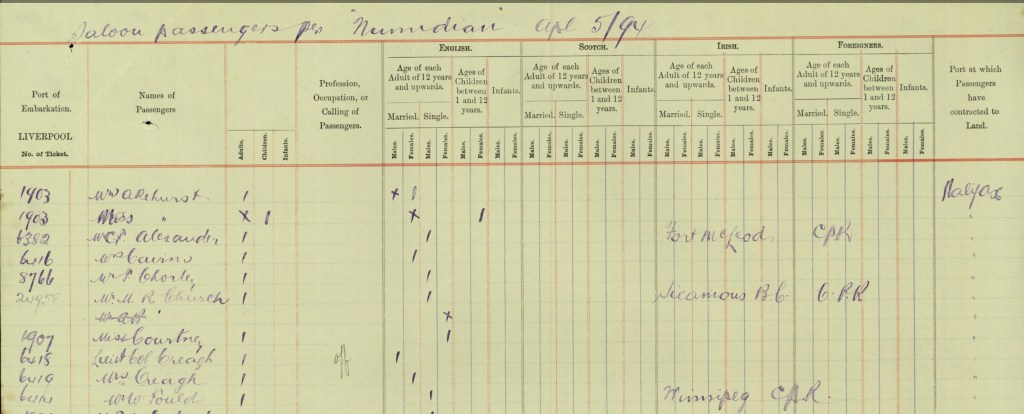 Saloon passengers per "Numidian" Apl 5/94
ENGLISH. SCOTCH. IRISH. FOREIGNERS.
Port of Embarkation. LIVERPOOL No. of Ticket.
Names of Passengers
Adults. Children. Infants.
Profession, Occupation, or Calling of Passengers.
Age of each Adult of 12 years and upwards. Ages of Children between 1 and 12 years. Infants.
Age of each Adult of 12 years and upwards. Ages of Children between 1 and 12 years. Infants.
Age of each Adult of 12 years and upwards. Ages of Children between 1 and 12 years. Infants.
Age of each Adult of 12 years and upwards. Ages of Children between 1 and 12 years. Infants.
Port at which Passengers have contracted to Land.
Married. Single. Married. Single. Married. Single. Married. Single.
Males. Females. Males. Females. Males. Females. Males. Females. Males. Females. Males. Females. Males. Females. Males. Females. Males. Females. Males. Females. Males. Females. Males. Females. Males. Females. Males. Females. Males. Females. Males. Females.
1903 Mrs Akehurst 1 x 1 Halifax
1903 Miss " x 1 x 1 "
6382 Mr C P Alexander 1 1 Fort McLeod CPR "
6416 Mrs Cairns 1 1 "
8766 Mr P Chorley 1 1 "
Mr M R Church 1 1 Sicamous B.C. C.P.R "
" x "
1907 Miss Courtney 1 1 "
6418 Lieut Col Creagh 1 off 1 "
6419 Mrs Creagh 1 1 "
Mr W Gould 1 1 Winnipeg C.P.R. "